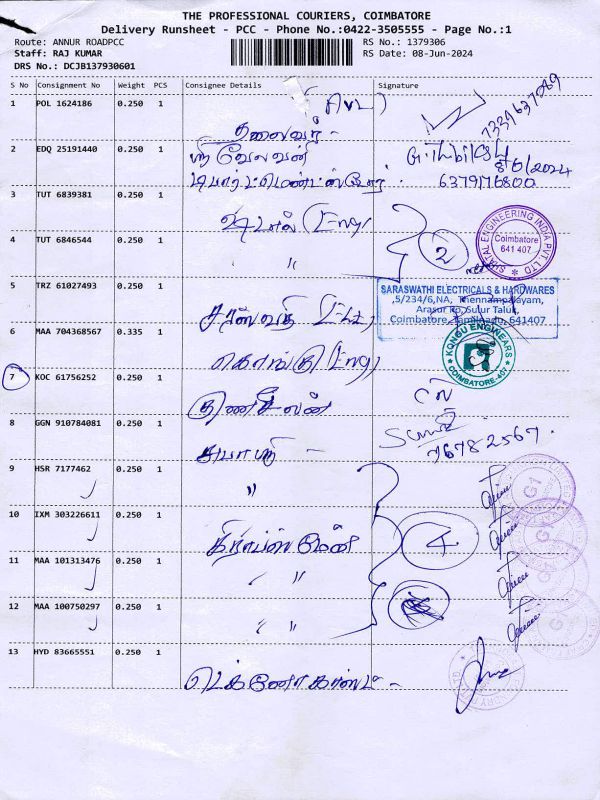 THE PROFESSIONAL COURIERS, COIMBATORE
Delivery Runsheet - PCC - Phone No.:0422-3505555 - Page No.:1
Route: ANNUR ROADPCC
RS No.: 1379306
Staff: RAJ KUMAR
RS Date: 08-Jun-2024
DRS No.: DCJB137930601
S No Consignment No Weight PCS Consignee Details Signature
1 POL 1624186 0.250 1
7339637089
தலைவர் -
2 EDQ 25191440 0.250 1 ஸ்ரீ வேலவன்
8/6/2024
டிபார்ட்மெண்ட் ஸ்டோர்
6379176800
3 TUT 6839381 0.250 1
(Eng)
4 TUT 6846544 0.250 1 "
2
SIRATAL ENGINEERING INDIA PVT. LTD
Coimbatore
641 407
5 TRZ 61027493 0.250 1
SARASWATHI ELECTRICALS & HARDWARES
,5/234/6,NA, Thennampalayam,
Arasur Po, Sulur Taluk,
Coimbatore, Tamilnadu, 641407
சரஸ்வதி
6 MAA 704368567 0.335 1
கொங்கு (Eng)
KONGU ENGINEARS
COIMBATORE-407
7 KOC 61756252 0.250 1
குணசீலன்
8 GGN 910784081 0.250 1
76782567.
சபாஸ்ரீ -
9 HSR 7177462 0.250 1 "
G1
10 IXM 303226611 0.250 1
4
11 MAA 101313476 0.250 1 "
12 MAA 100750297 0.250 1 "
13 HYD 83665551 0.250 1
டெக்னோ